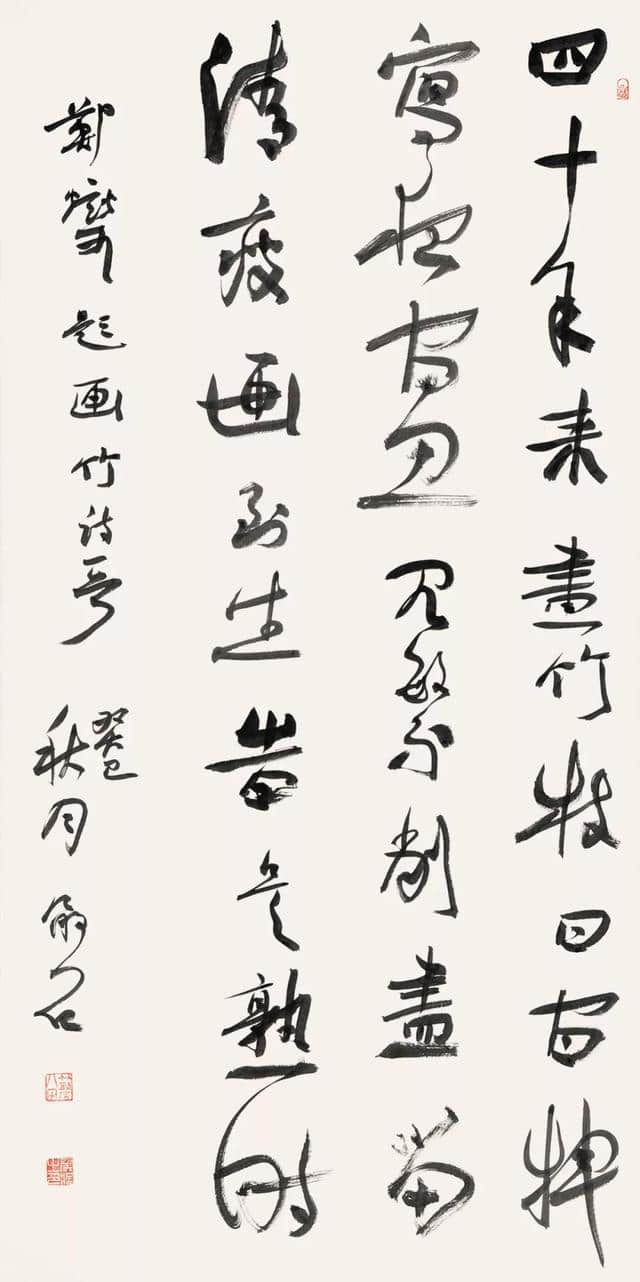 四十年来畫竹枝日间挥
寫夜间思冗繁削盡留
清瘦画到生旹是熟时
鄭燮题画竹诗一首 癸巳秋月